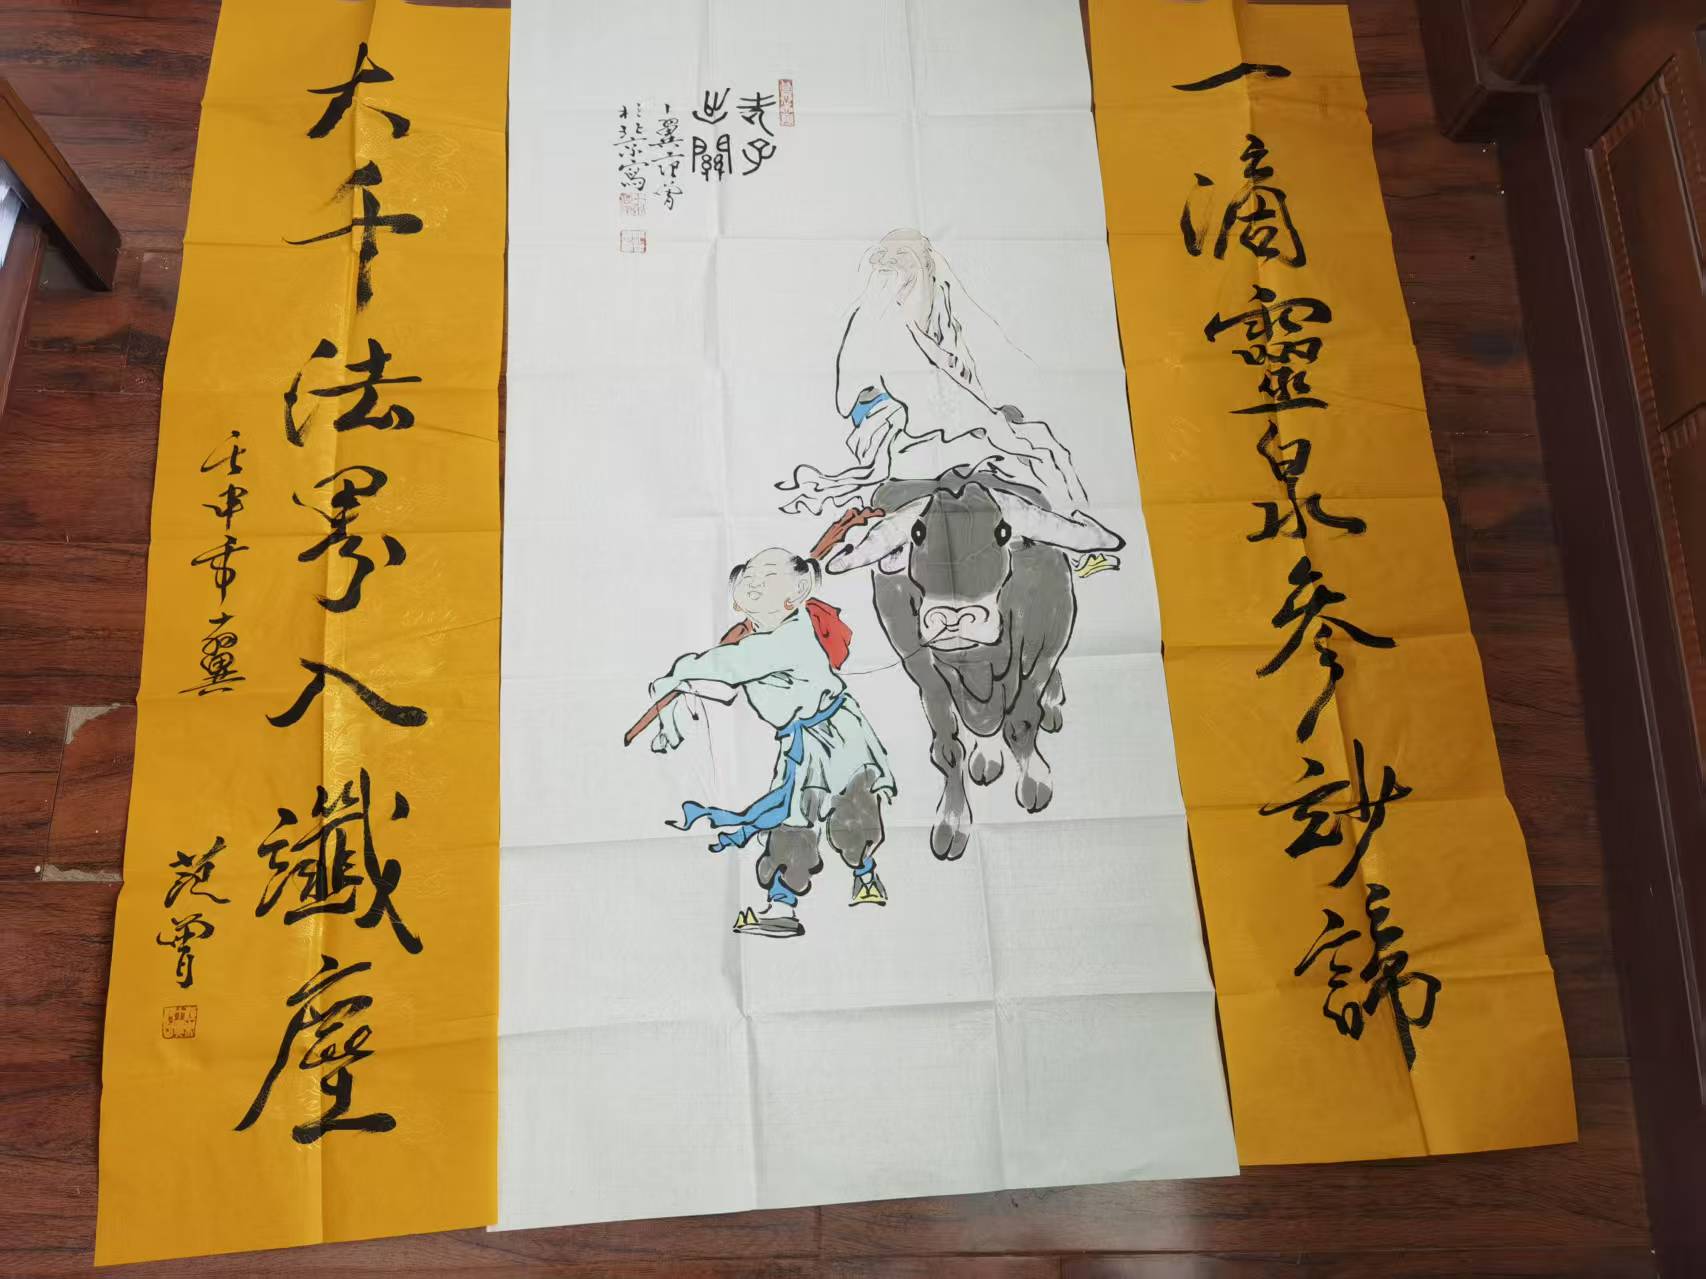 一滴靈泉參妙諦
老子
出關
十翼范曾
於北京寫
大千法界入纖塵
壬申年十翼
范曾